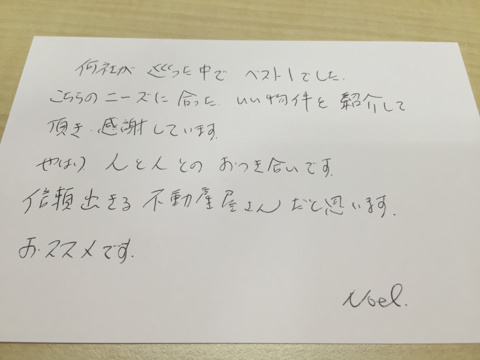 何社か巡った中でベスト1でした.
こちらのニーズに合った、いい物件を紹介して
頂き、感謝しています.
やはり人と人とのおつき合いです.
信頼出きる不動産屋さんだと思います.
おススメです.
Noel.